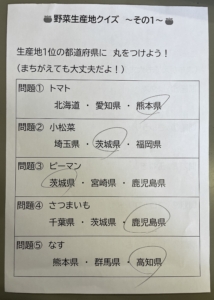 野菜生産地クイズ ～その1～
生産地1位の都道府県に 丸をつけよう！
（まちがえても大丈夫だよ！）
問題① トマト
北海道 ・ 愛知県 ・ 熊本県
問題② 小松菜
埼玉県 ・ 茨城県 ・ 福岡県
問題③ ピーマン
茨城県 ・ 宮崎県 ・ 鹿児島県
問題④ さつまいも
千葉県 ・ 茨城県 ・ 鹿児島県
問題⑤ なす
熊本県 ・ 群馬県 ・ 高知県